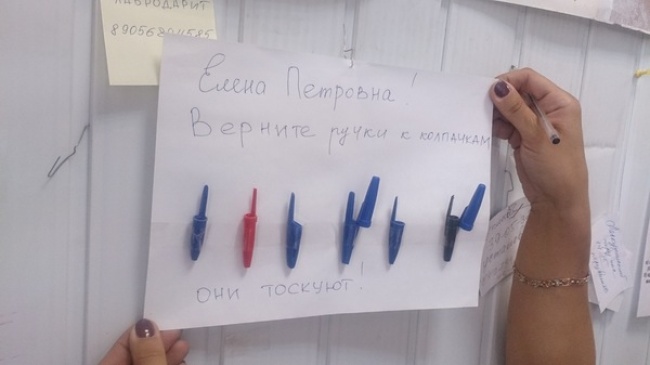 89056804585
Елена Петровна!
Верните ручки к колпачкам
они тоскуют!